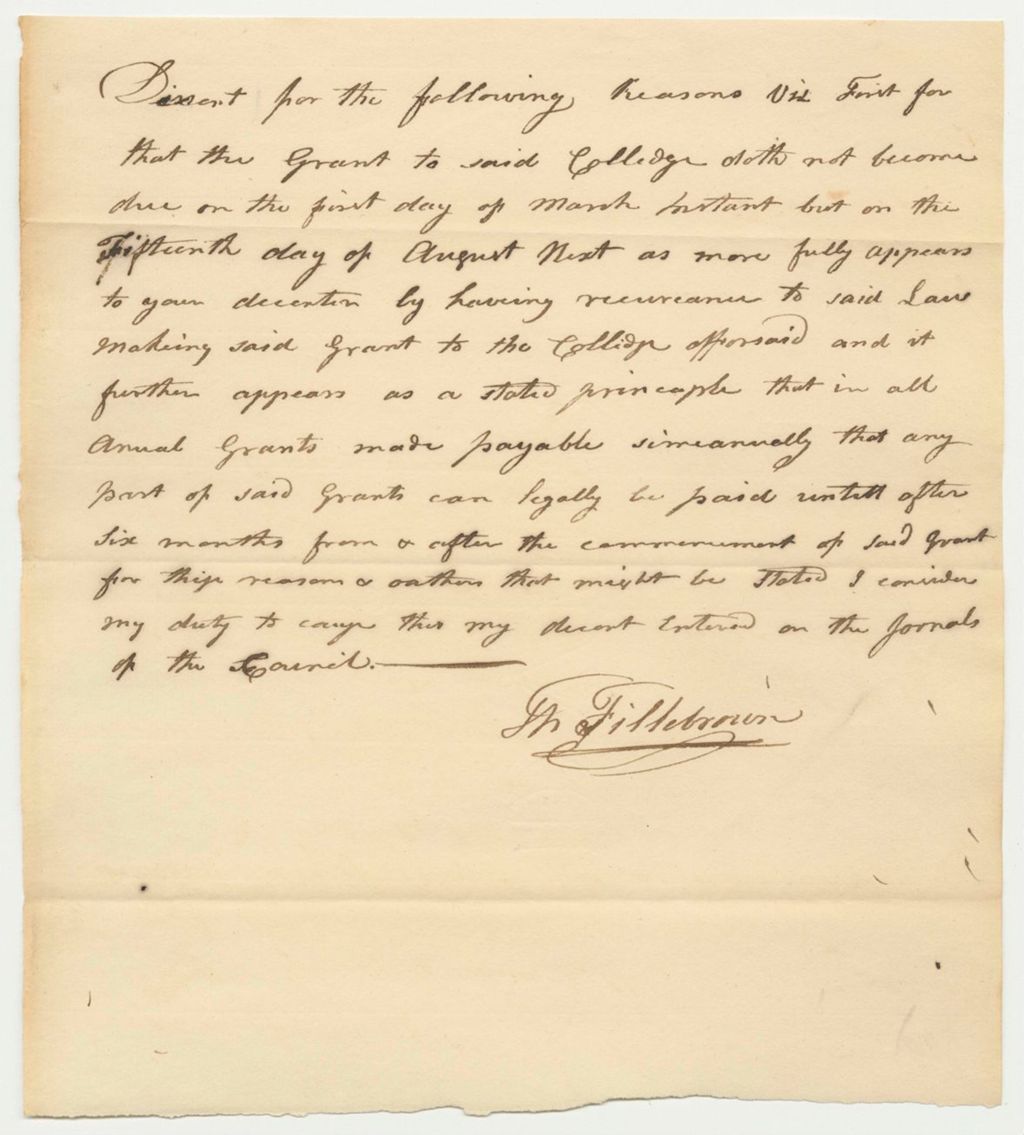 Disent for the following Reasons Viz First for
that the Grant to said Colledge doth not become
due on the first day of March Instant but on the
Fifteenth day of August Next as more fully appears
to your decenter by haveing recureance to said Law
Makeing said Grant to the Collidge afforsaid and it
further appears as a stated principple that in all
Anual Grants made payable simeanually that any
part of said Grants can legally be paid untill after
Six months from & after the commencement of said Grant
for thise reasons & oathers that might be stated I consider
my duty to cause this my decent Entered on the Jornals
of the Council.
Th Fillebrown